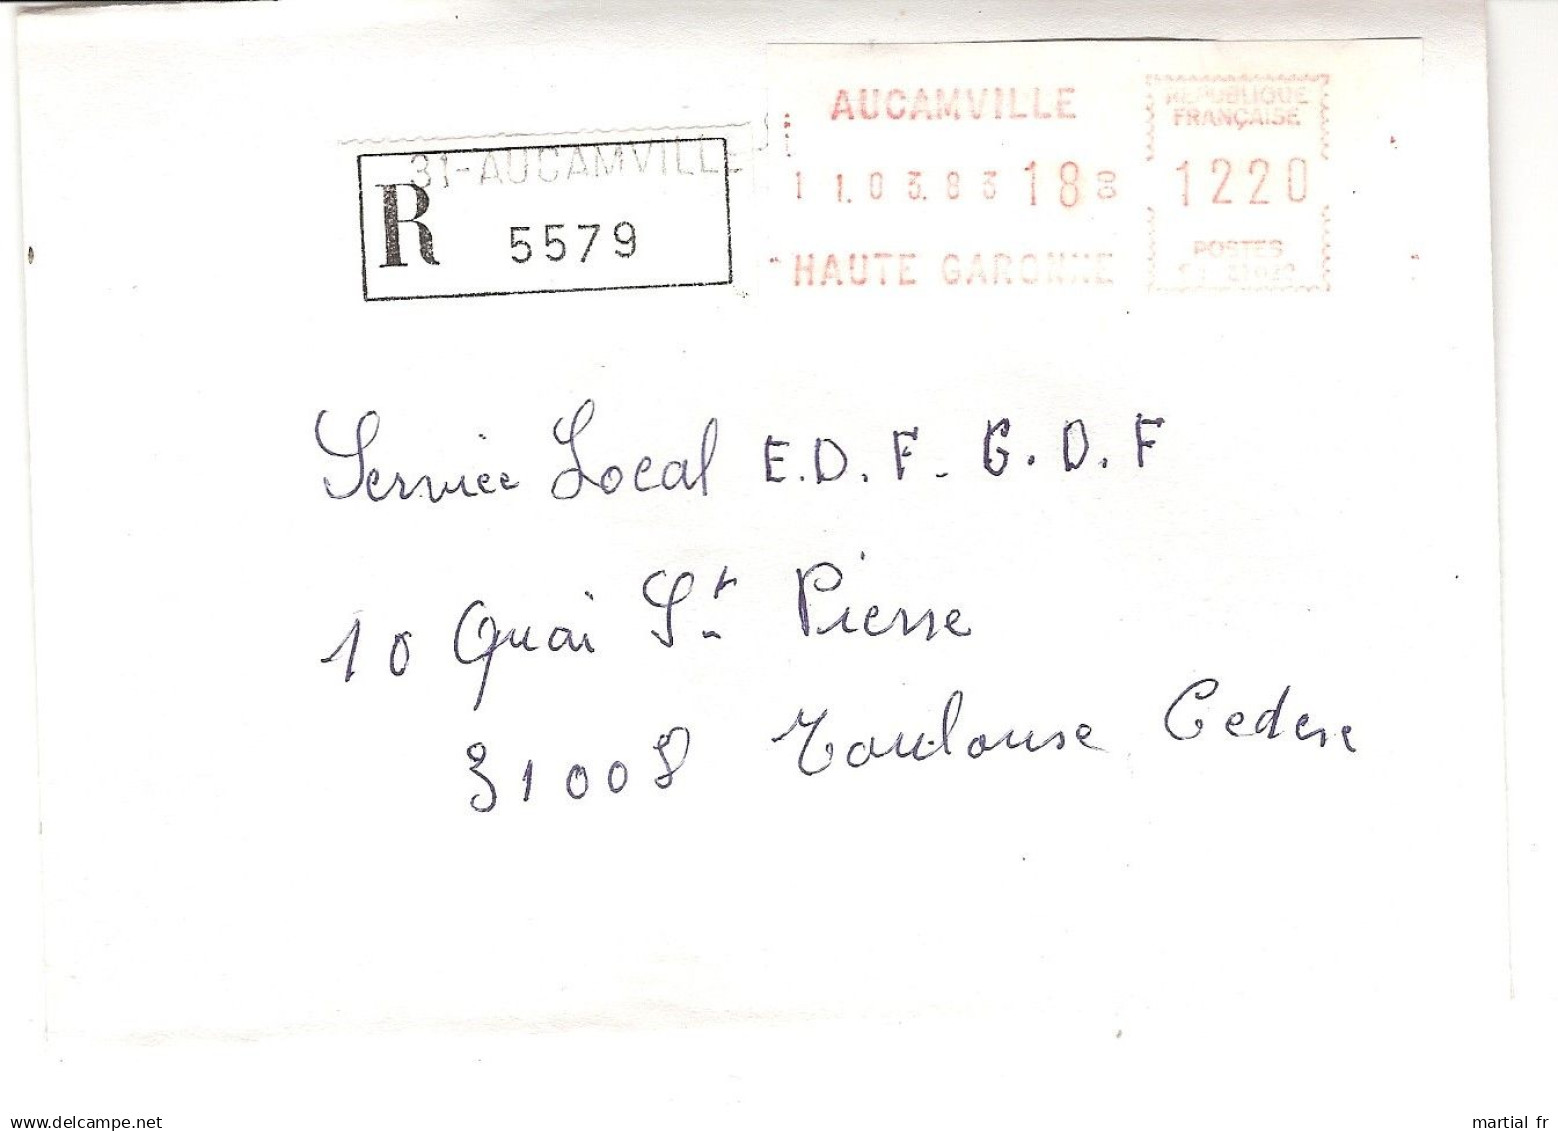 31-AUCAMVILLE
R 5579
AUCAMVILLE
11.03.83 18 00
HAUTE GARONNE
REPUBLIQUE
FRANÇAISE
1220
POSTES
Service Local E.D.F. G.D.F
10 Quai St Pierre
31008 Toulouse Cedex
www.delcampe.net
martial fr